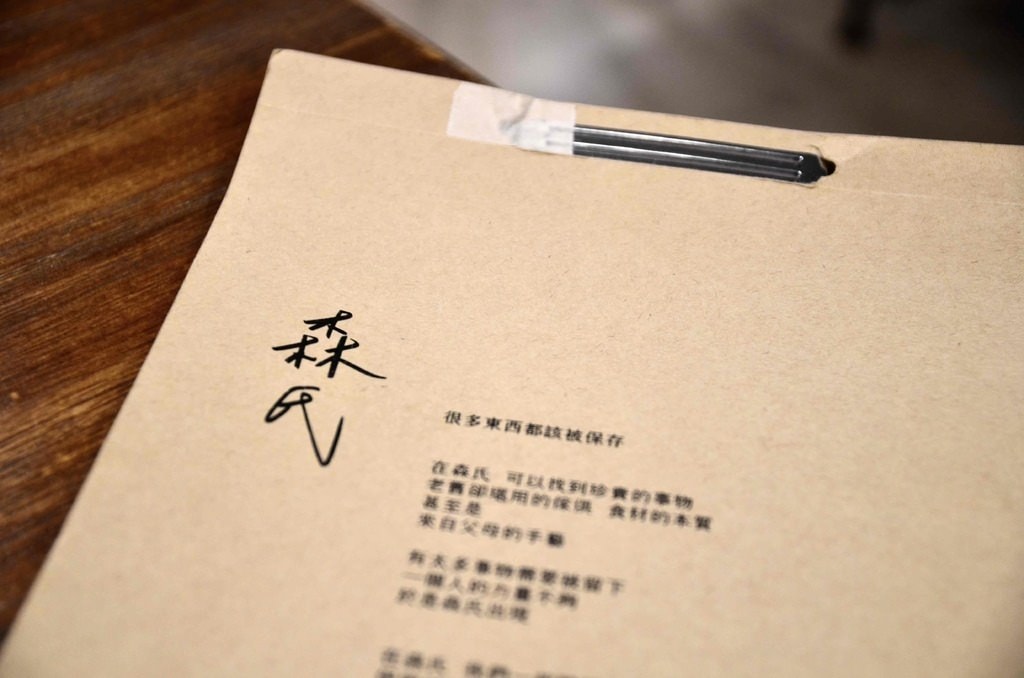 森氏
很多東西都該被保存
在森氏 可以找到珍貴的事物
老舊卻堪用的傢俱 食材的本質
甚至是
來自父母的手藝
有太多事物需要被留下
一個人的力量不夠
於是森氏出現
在森氏 我們一